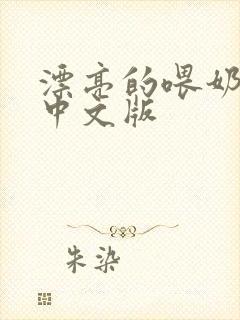 漂亮的喂奶
中文版
朱染